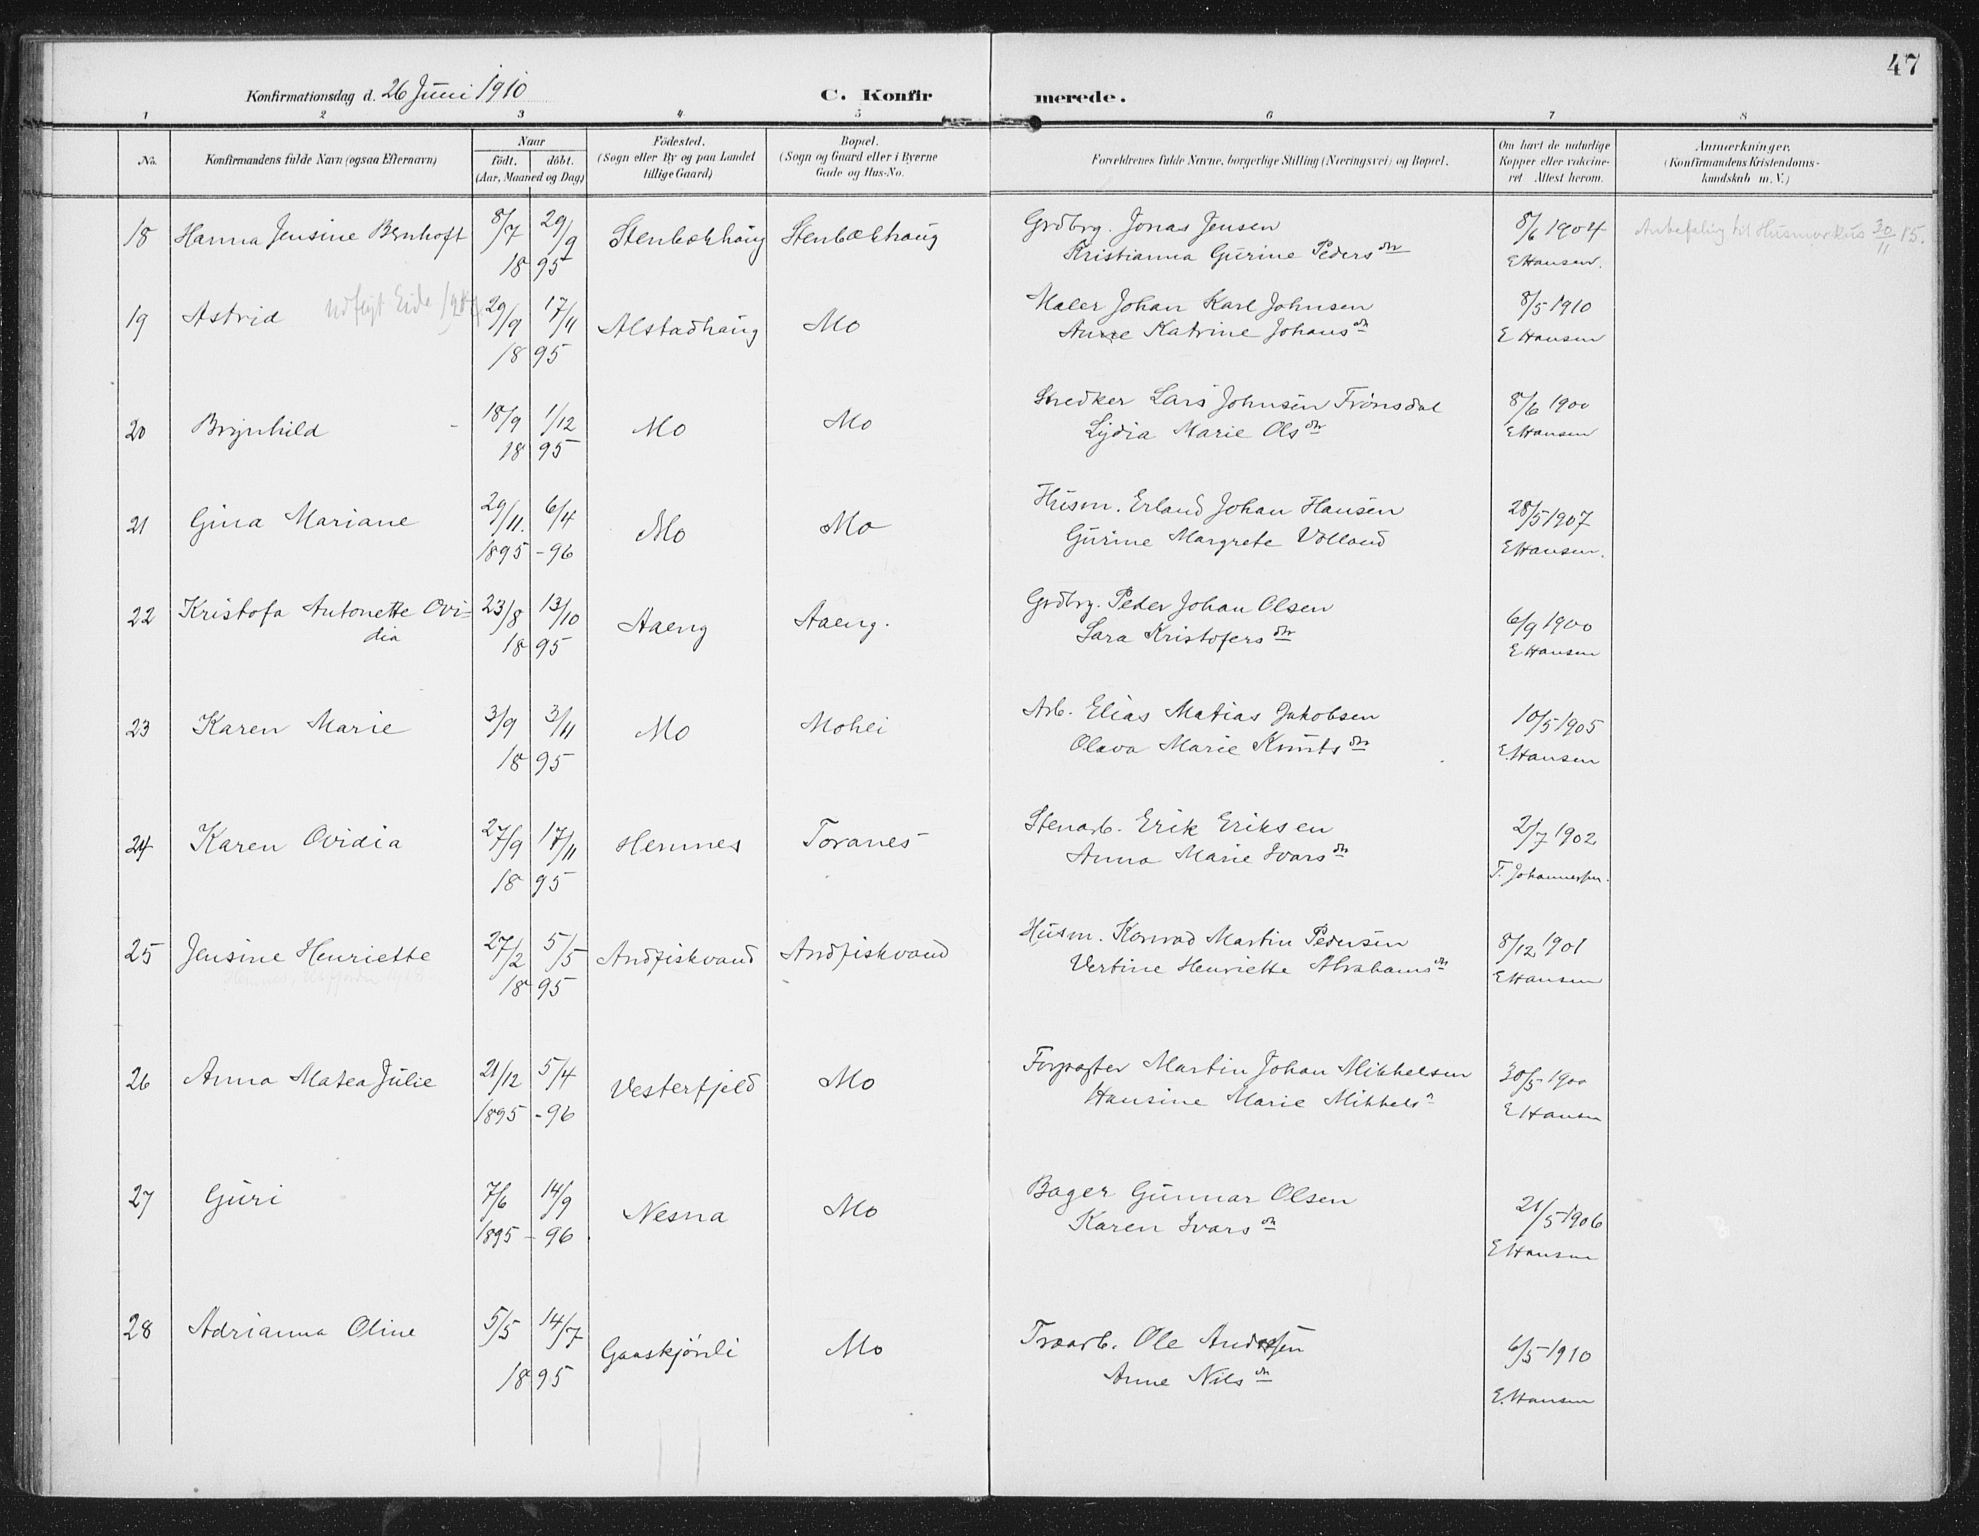 47
Konfirmationsdag d. 26 Juni 1910
C. Konfirmerede.
1 2 3 4 5 6 7 8
No. Konfirmandens fulde Navn (ogsaa Efternavn) Naar født. døbt. (Aar, Maaned og Dag) Fødested. (Sogn eller By og paa Landet tillige Gaard) Bopæl. (Sogn og Gaard eller i Byerne Gade og Hus-No. Forældrenes fulde Navne, borgerlige Stilling (Næringsvei) og Bopæl. Om havt de naturlige Kopper eller vaccineret Attest herom. Anmærkninger. (Konfirmandens Kristendomskundskab m. V.)
18 Hanna Jensine Bernhoft 8/7 29/9 Stenbækhaug Stenbækhaug Grdbrg. Jonas Jensen 8/6 1904 Anbefaling til 30/11 15.
18 95 Kristianna Gurine Pedersdtr EHansen.
19 Astrid 29/9 17/11 Alstadhaug Mo Maler Johan Karl Johnsen 8/5 1910
18 95 Anne Katrine Johansdtr E Hansen
20 Brynhild 18/9 1/12 Mo Mo Snedker Lars Johnsen Trønsdal 8/6 1900
18 95 Lydia Marie Olsdtr EHansen
21 Gina Mariane 29/11. 6/4 Mo Mo Husm. Erland Johan Hansen 28/5 1907
1895 - 96 Gurine Margrete Volland EHansen.
22 Kristofa Antonette Ovi- 23/8 13/10 Aaeng Aaeng. Grdbrg. Peder Johan Olsen 6/9 1900
dia 18 95 Sara Kristofersdtr E Hansen
23 Karen Marie 3/9 3/11 Mo Mohei Arb. Elias Matias Jakobsen 10/5 1905
18 95 Olava Marie Knutsdtr E.Hansen
24 Karen Ovidia 27/9 17/11 Hemnes Toranes Stenarb. Erik Eriksen 2/7 1902
18 95 Anna Marie Ivarsdtr T. Johannessen.
25 Jensine Henriette 27/2 5/5 Andfiskvand Andfiskvand Husm. Konrad Martin Pedersen 8/12 1901
18 95 Vertine Henriette Abrahamsdtr EHansen
26 Anna Matea Julie 21/12 5/4 Vesterfjeld Mo Forpagter Martin Johan Mikkelsen 30/5 1900
1895 - 96 Hansine Marie Mikkels EHansen
27 Guri 7/6 14/9 Nesna Mo Bager Gunnar Olsen 21/5 1906
1895 - 96 Karen Ivarsdtr EHansen
28 Adrianna Oline 5/5 14/7 Gaaskjønli Mo Træarb. Ole Andersen 6/5 1910
18 95 Anne Nilsdtr E.Hansen